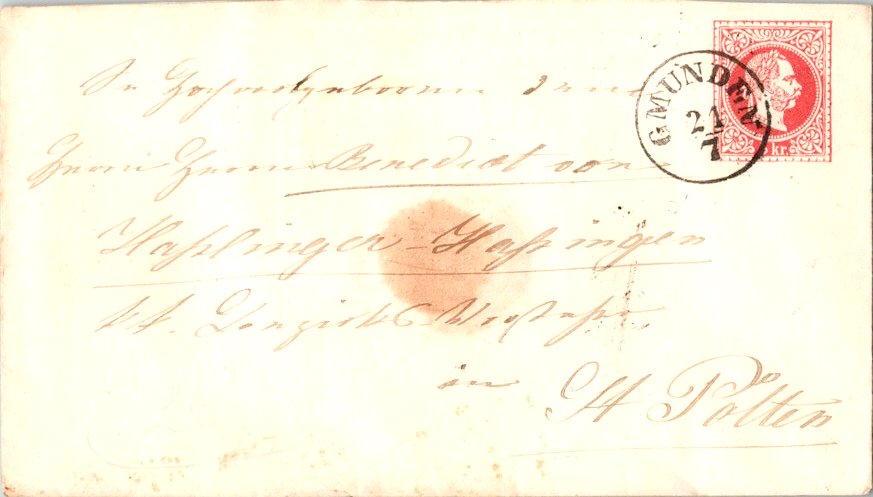 GMUNDEN
21
7
kr.
Sr Hochwohlgeboren dem
Herrn Herrn Benedict von
Haßlinger-Haßingen
k k. Bezirks-Vorsteher
in
St Pölten